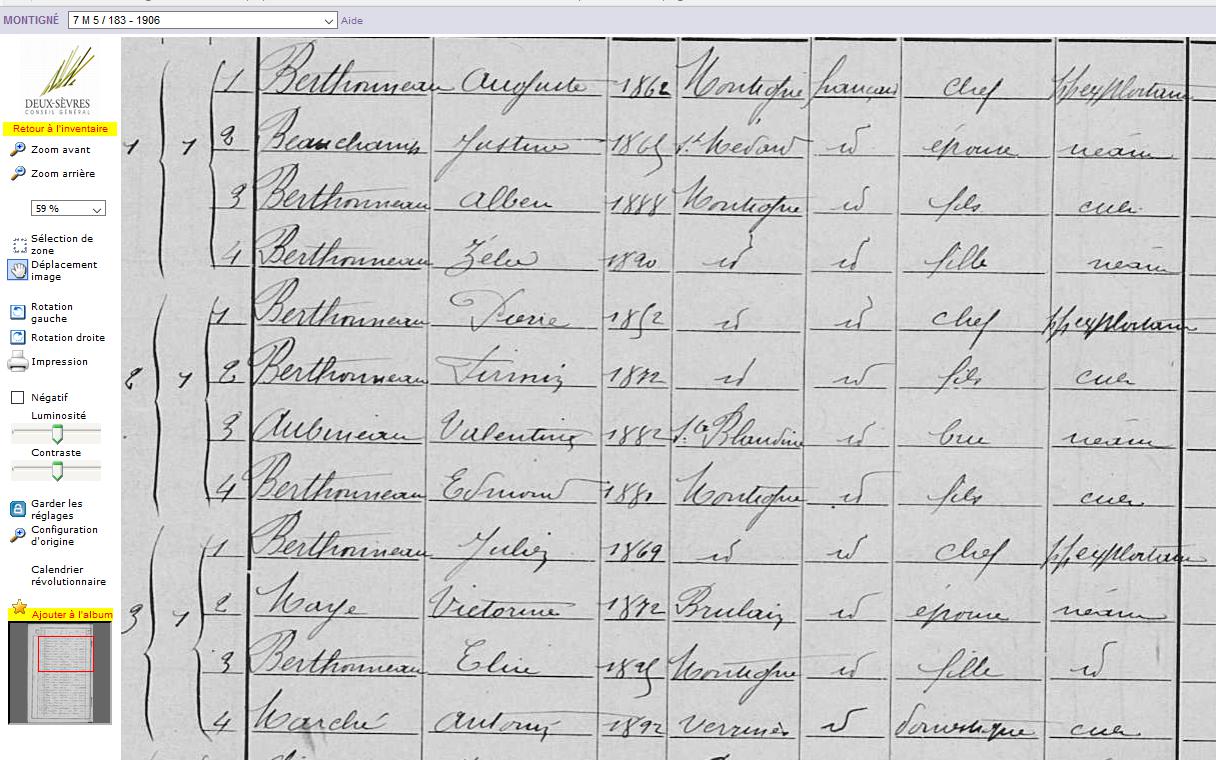 MONTIGNÉ 7 M 5 / 183 - 1906 Aide
DEUX-SÈVRES
CONSEIL GÉNÉRAL
Retour à l'inventaire
Zoom avant
Zoom arrière
59 %
Sélection de
zone
Déplacement
image
Rotation
gauche
Rotation droite
Impression
Négatif
Luminosité
Contraste
Garder les
réglages
Configuration
d'origine
Calendrier
révolutionnaire
Ajouter à l'album
1 1 1 Berthonneau Auguste 1862 Montigné français chef
2 Beauchamp Justine 1865 St Médard id épouse néant
3 Berthonneau Albert 1888 Montigné id fils
4 Berthonneau Zélie 1890 id id fille néant
2 1 1 Berthonneau Pierre 1852 id id chef
2 Berthonneau Firmin id id fils
3 Aubineau Valentine 1882 Ste Blandine id bru néant
4 Berthonneau Edmond 188 Montigné id fils
3 1 1 Berthonneau Julien 1869 id id chef
2 Naye Victorine 1872 Brulain id épouse néant
3 Berthonneau Elise 1895 Montigné id fille id
4 Marché Antonin 1892 Verrines id domestique